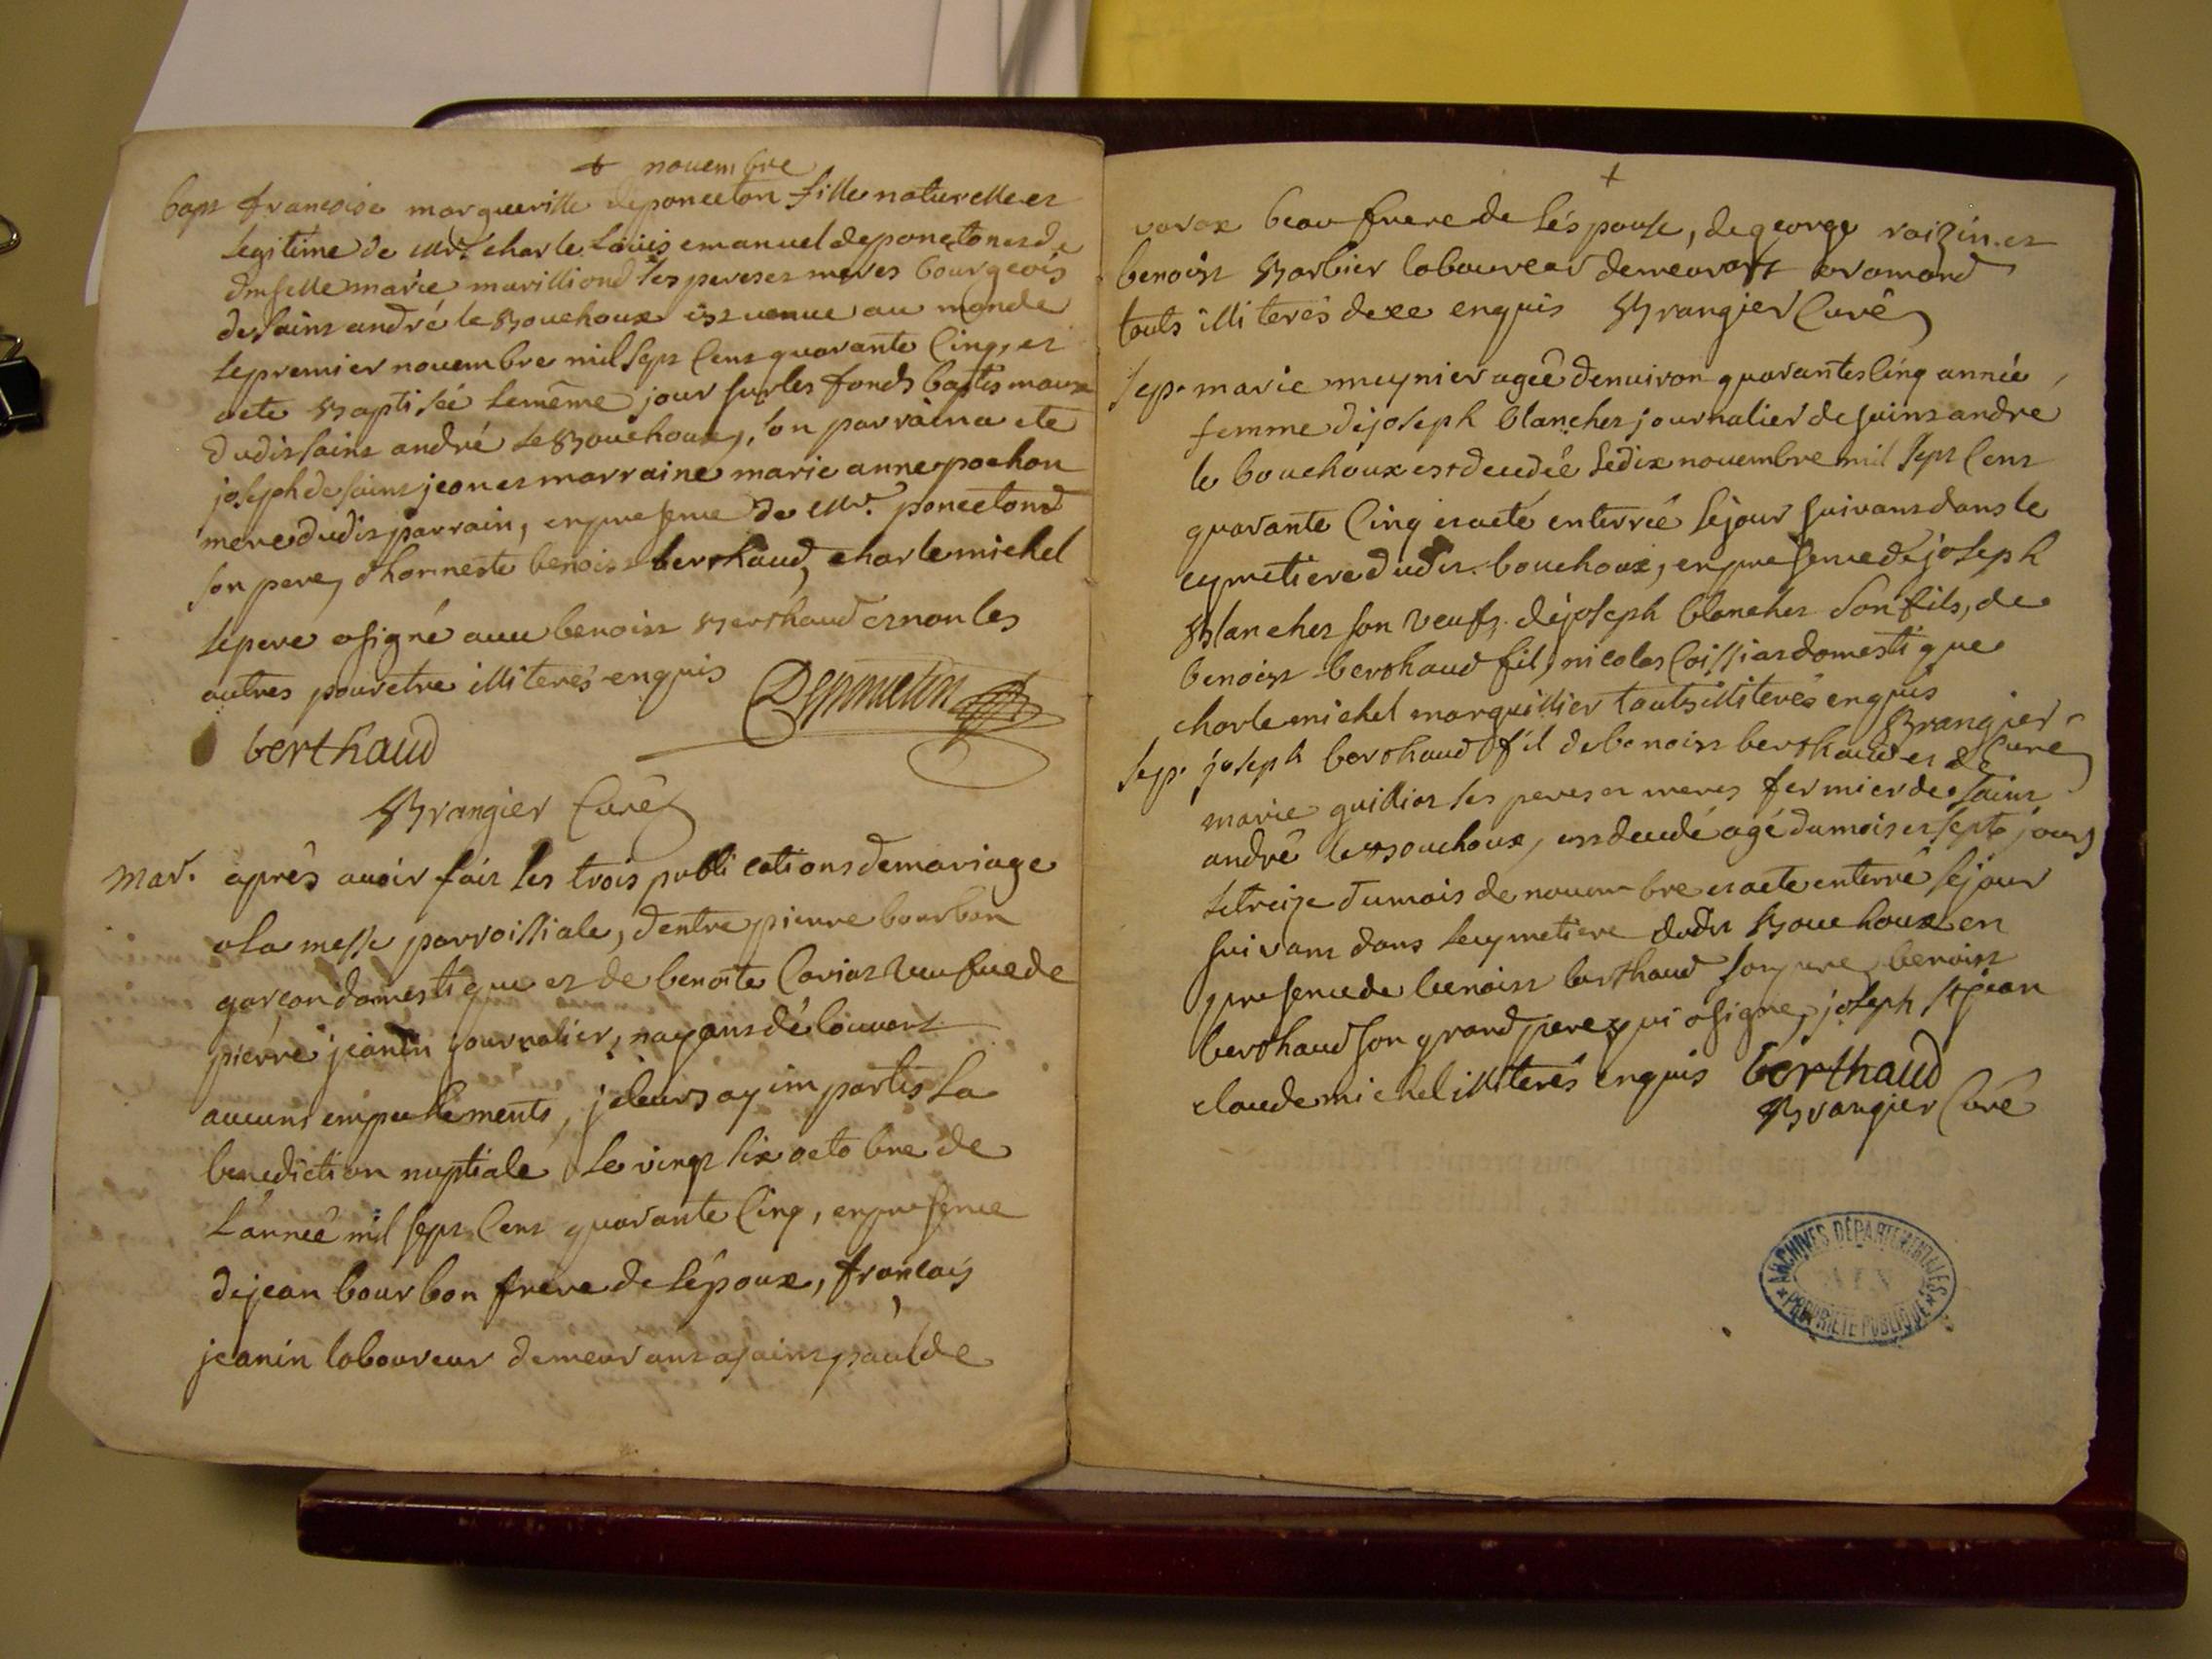 + novembre
bapt francoise margueritte deponceton fille naturelle et
legitime de Mr. charle Loüis emanuel deponceton et de
dmselle marie marilliond ses peres et meres bourgeois
de saint andré le Bouchoux est venue au monde
le premier novembre mil sept cent quarante cinq, et
aeté Baptisée le même jour sur les fonds baptismaux
dudit saint andré le Bouchoux, son parrain a eté
joseph de saint jean et marraine marie anne pochon
mere dudit parrain, en presence de Mr. poncetond
son pere, d'honneste benoist berthaud, charle michel
le pere a signé avec benoist Berthaud et non les
autres pour etre illiterés enquis Deponceton
berthaud
Brangier Curé
mar. après avoir fait les trois publications de mariage
a la messe parroissiale, d'entre pierre bourbon
garcon domestique et de benoite Coriat veufve de
pierre jeanin journalier, n'ayant découvert
aucuns empechements, je leurs ay impartis la
benediction nuptiale le vingt six octobre de
L'année mil sept cent quarante cinq, en presence
de jean bourbon frere de L'époux, francois
jeanin laboureur demeurant a saint paul de
+
varax beau frere de L'épouse, de george raizin et
benoist Barbier laboureur demeurant a romand
touts illiterés de ce enquis Brangier Curé
sep. marie meynier ageé d'environ quarantes cinq année
femme de joseph blanchet journalier de saint andre
le bouchoux est decedée le dix novembre mil sept cent
quarante cinq et a eté enterrée le jour suivant dans le
cymetiere dudit bouchoux, en presence de joseph
Blanchet son veuf, de joseph blanchet son fils, de
benoist berthaud fil, nicolas Coissiat domestique
charle michel marguillier touts illiterés enquis
Brangier Curé
sep. joseph berthaud fil de benoist berthaud et de
marie guilliot ses peres et meres fermier de saint
andré le Bouchoux, est decedé agé du mois et sept jours
le treize du mois de novembre et a eté enterré le jour
suivant dans le cymetiere dudit Bouchoux en
presence de benoist berthaud son pere, benoist
berthaud son grand pere qui a signé, joseph st jean
claude michel illiterés enquis berthaud
Brangier Curé
ARCHIVES DÉPARTEMENTALES
AIN
PROPRIÉTÉ PUBLIQUE